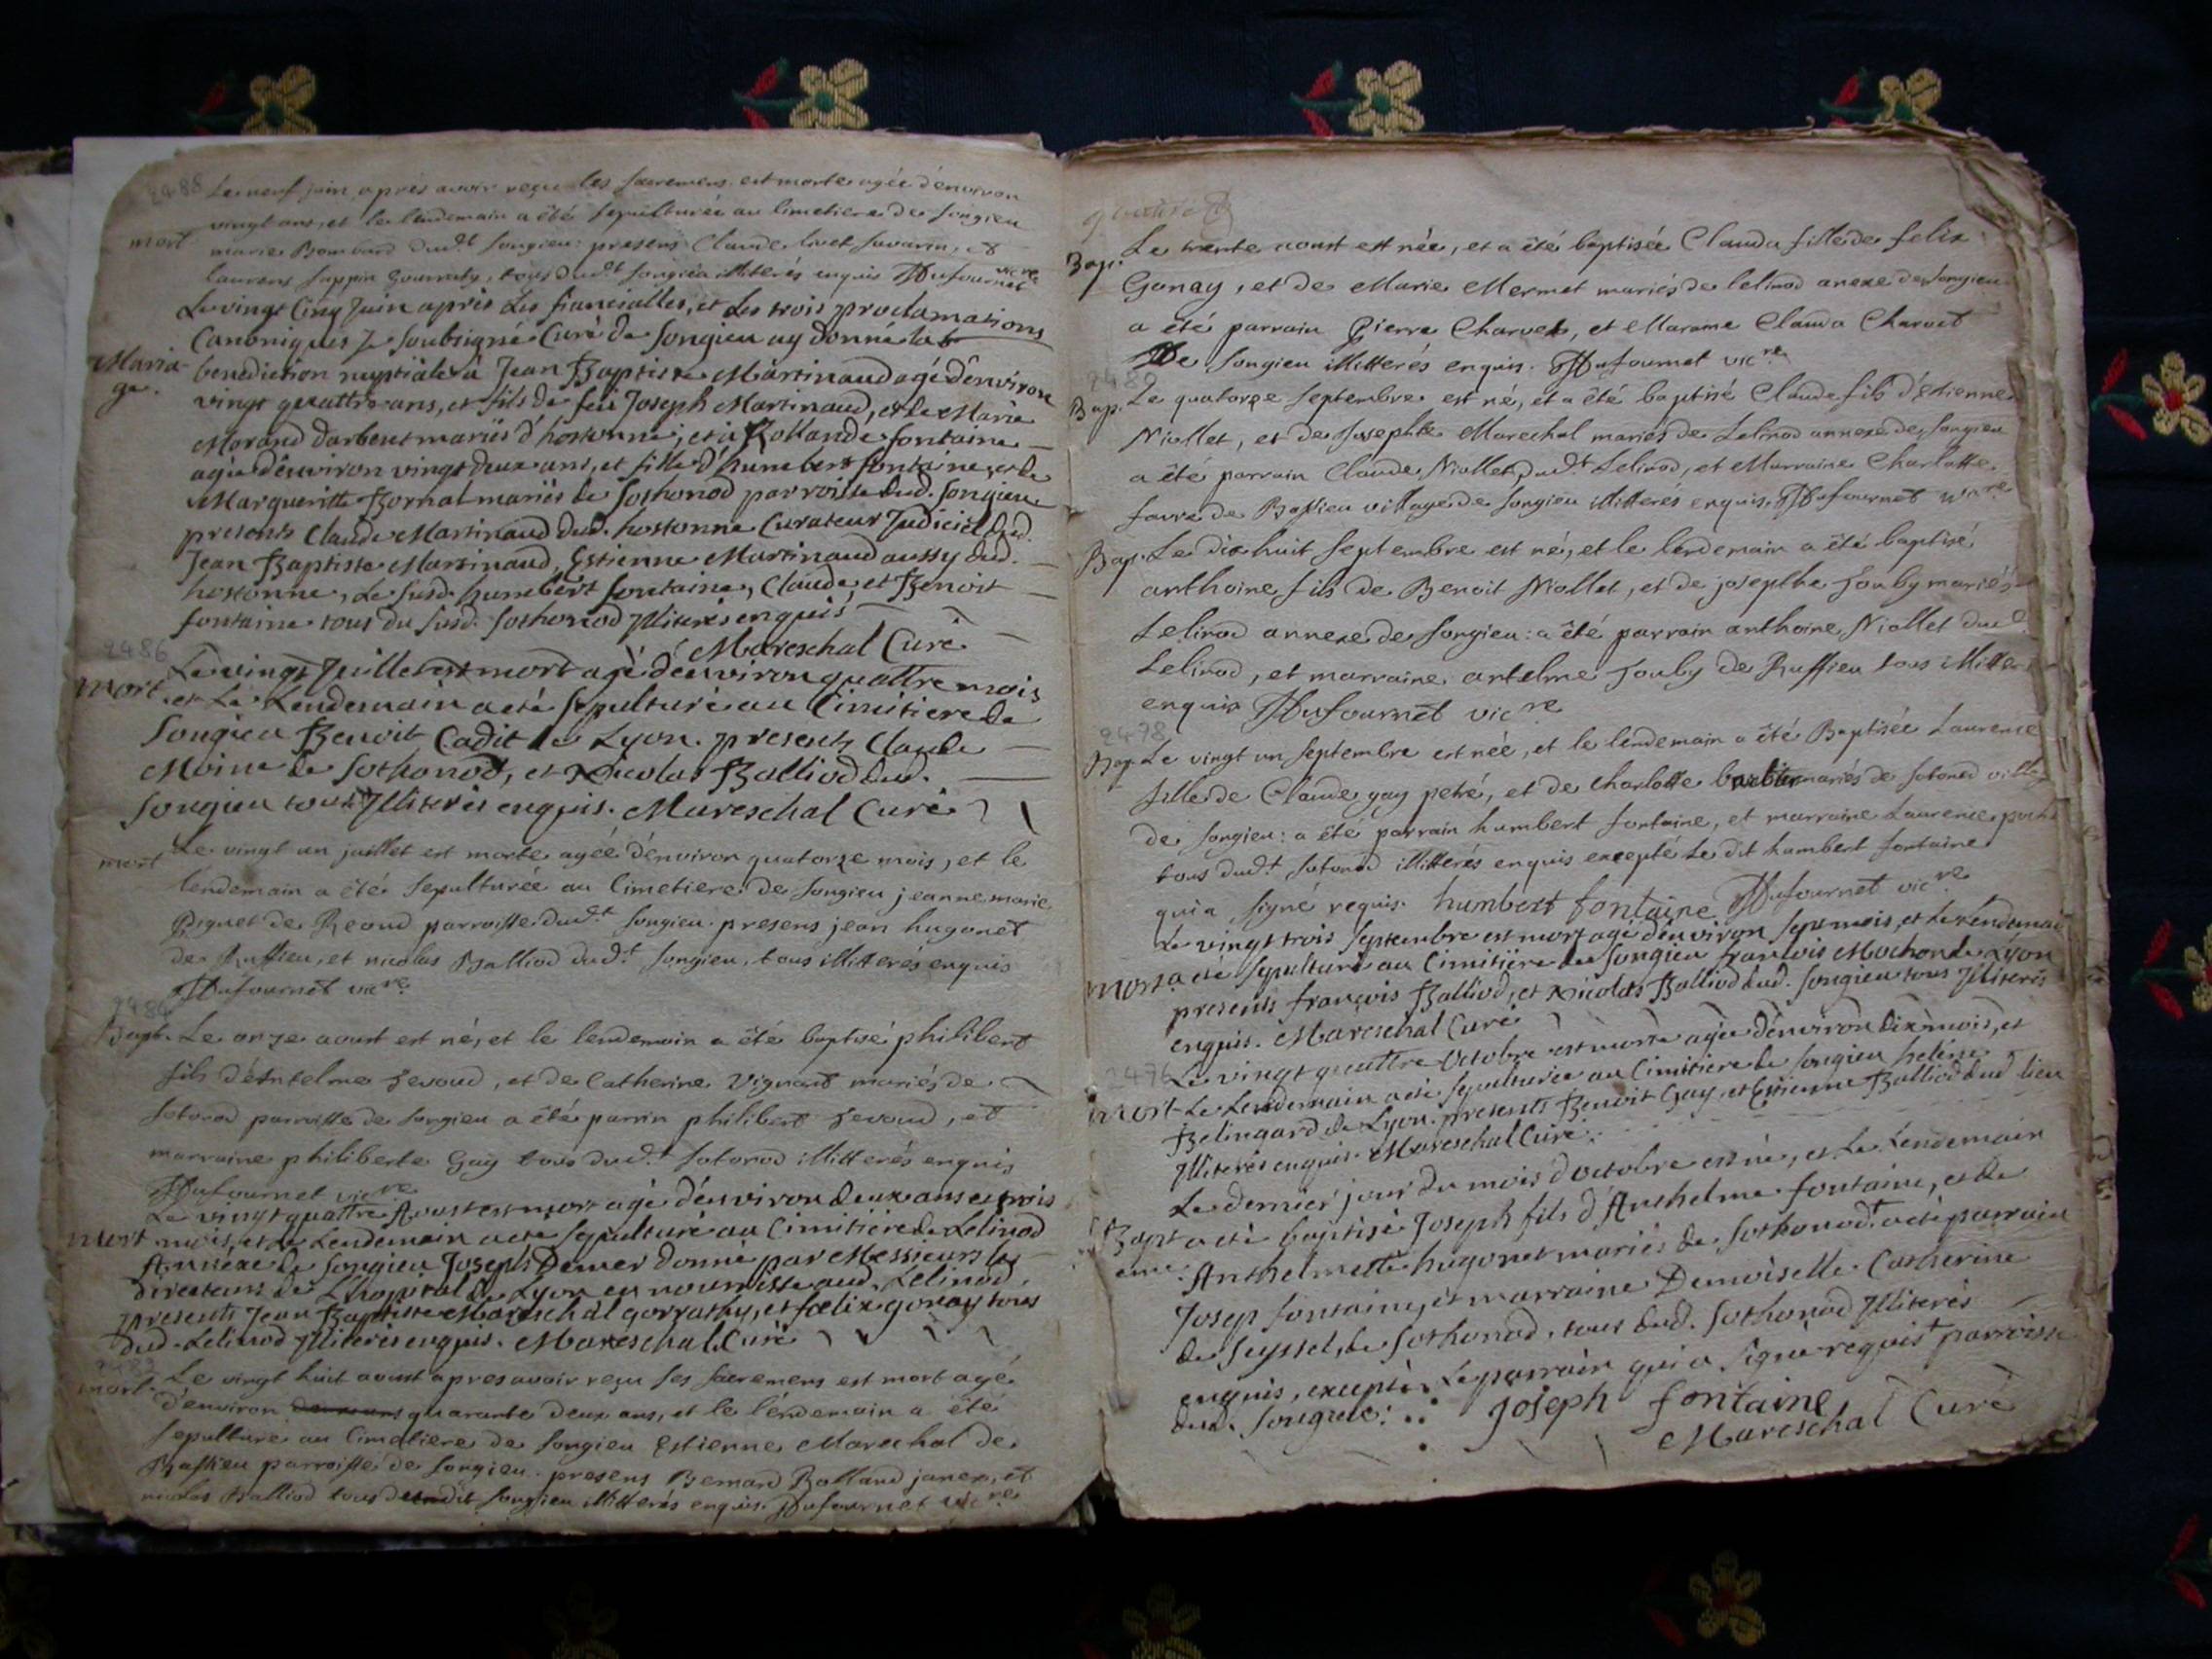 2488
Le neuf juin, aprés avoir reçu les sacremens est morte agée d'environ
vingt ans, et le lendemain a été sepulturée au Cimetiere de songieu
mort
marie Bombard dud.t songieu: presens Claude livet savarin, et
laurens suppin gourraty, tous dud.t songieu illiterés enquis Dufournet vic.re
Le vingt Cinq Juin aprés Les fiancialles, et Les trois proclamations
Canoniques Je soubsigné Curé de songieu ay donné la
Maria-
ge.
benediction nuptiale à Jean Baptiste Martinaud agé d'environ
vingt quattre ans, et fils de feü Joseph Martinaud, et de Marie
Morand darbeut mariés d'hostonne; et à Rollande fontaine
agée d'environ vingt deux ans, et fille d'humbert fontaine, et de
Margueritte Bornat mariés de Sothonod parroisse dud. songieu
presents Claude Martinaud dud. hostonne Curateur Judiciel dud.
Jean Baptiste Martinaud, Estienne Martinaud aussy dud.
hostonne, Le susd. humbert fontaine, Claude, et Benoit
fontaine tous du susd. sothonod Illiterés enquis
Mareschal Curé
2486
mort
Le vingt Juillet est mort agé d'environ quattre mois
et Le Lendemain a eté sepulturé au Cimitiere de
Songieu Benoit Cadit de Lyon. presents Claude
Moine de Sothonod, et Nicolas Balliod dud.
songieu tous Illiterés enquis. Mareschal Curé
mort
Le vingt un juillet est morte agée d'environ quatorze mois, et le
lendemain a été sepulturée au Cimetiere de songieu jeanne marie
Piquet de Reoud parroisse dud.t songieu. presens jean hugonet
de Ruffieu, et nicolas Balliod dud.t songieu, tous illitterés enquis
Dufournet vic.re
Bapt.
Le onze aoust est né, et le lendemain a été baptisé philibert
fils d'Antelme Jevoud, et de Catherine Vignant mariés de
Sotonod parroisse de songieu a été parrin philibert Jevoud, et
marraine philiberte Gay tous dud.t sotonod illitterés enquis
Dufournet vic.re
Le vingt quattre Aoust est mort agé d'environ deux ans et trois
mort
mois, et Le Lendemain a eté sepulturé au Cimitiere de Lelinod
Annexe de songieu Joseph Demer donné par Messieurs les
directeurs de L'hopital de Lyon en nourrisse aud. Lelinod,
presents Jean Baptiste Mareschal gorrathy, et fœlix gonay tous
dud. Lelinod Illiterés enquis. Mareschal Curé
mort
Le vingt huit aoust apres avoir reçu ses sacremens est mort agé
d'environ deux ans quarante deux ans, et le lendemain a été
sepulturé au Cimetiere de songieu Estienne Marechal de
Bassieu parroisse de songieu. presens Bernard Bolland janex, et
nicolas Balliod tous dudit songieu illitterés enquis. Dufournet vic.re
Bap.
Le trente aoust est née, et a été baptisée Clauda fille de felix
Gonay, et de Marie Mermet mariés de lelinod anexe de songieu
a été parrain Pierre Charvet, et Maraine Clauda Charvet
De songieu illitterés enquis. Dufournet vic.re
Bap.
Le quatorze septembre est né, et a été baptisé Claude fils d'Estienne
Niollet, et de Josephte Marechal mariés de Lelinod annexe de songieu
a été parrain Claude Niollet dud.t Lelinod, et Marraine Charlotte
favre de Bassieu village de songieu illitterés enquis. Dufournet vic.re
Bap.
Le dix huit septembre est né, et le lendemain a été baptisé
anthoine fils de Benoit Niollet, et de josephte Jouby mariés
Lelinod annexe de songieu: a été parrain anthoine Niollet dud.
Lelinod, et marraine antelme Jouby de Ruffieu tous illitter
enquis Dufournet vic.re
2478
Bap.
Le vingt un septembre est née, et le lendemain a été Baptisée Laurence
fille de Claude gay peté, et de charlotte mariés de sotonod villag
de songieu: a été parrain humbert fontaine, et marraine Laurence
tous dud.t sotonod illitterés enquis excepté Le dit humbert fontaine
qui a signé requis. humbert fontaine Dufournet vic.re
Le vingt trois septembre est mort agé d'environ sept mois, et Le Lendemain
mort
a eté sepulturé au Cimitiere de songieu françois Mochon de Lyon
presents françois Balliod, et Nicolas Balliod dud. songieu tous Illiterés
enquis. Mareschal Curé
2476
Le vingt quattre Octobre est morte agée d'environ dix mois, et
mort
Le Lendemain a eté sepulturée au Cimitiere de songieu helene
Belingard de Lyon. presents Benoit Gay, et Estienne Balliod dud. lieu
Illiterés enquis. Mareschal Curé.
Le dernier jour du mois d'octobre est né, et Le Lendemain
Bapt
eme.
a eté baptisé Joseph fils d'Anthelme fontaine, et de
Anthelmette hugonet mariés de Sothonod.+ a eté parrain
Josep fontaine, et marraine Demoiselle Catherine
de Seyssel, de Sothonod, tous dud. Sothonod Illiterés
enquis, excepté Le parrain qui a signé requis + parroisse
dud. songieu:
joseph fontaine
Mareschal Curé